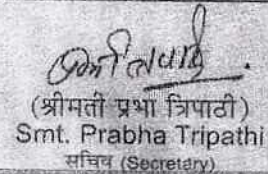 (श्रीमती प्रभा त्रिपाठी)
Smt. Prabha Tripathi
सचिव (Secretary)